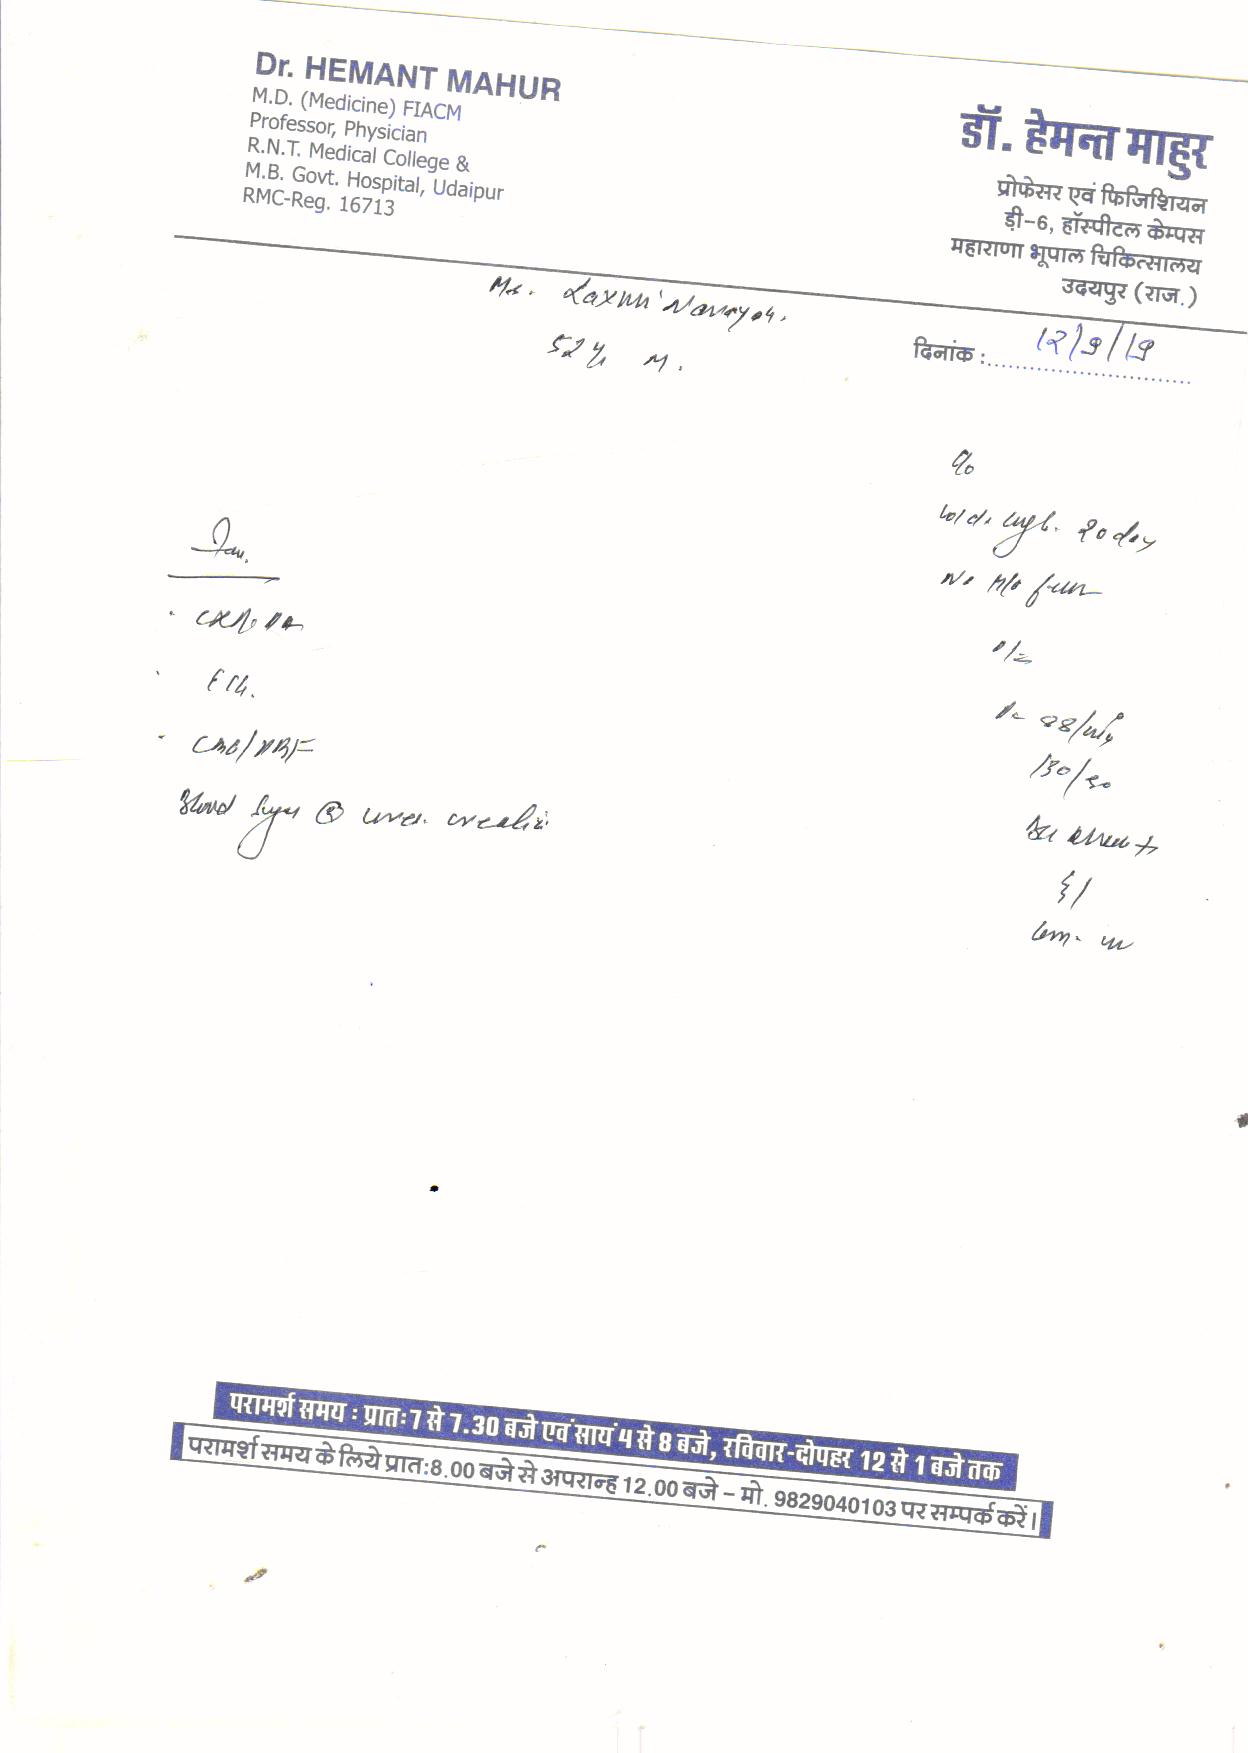 Dr. HEMANT MAHUR
M.D. (Medicine) FIACM
Professor, Physician
R.N.T. Medical College &
M.B. Govt. Hospital, Udaipur
RMC-Reg. 16713
डॉ. हेमन्त माहुर
प्रोफेसर एवं फिजिशियन
ड़ी-6, हॉस्पीटल केम्पस
महाराणा भूपाल चिकित्सालय
उदयपुर (राज.)
Mr. Laxmi Narayan.
52 y M.
दिनांक : 12/9/19
c/o
cold. cough. 20 day
No H/o fever
O/E
P- 88/min
130/80
CXR. PA
CBC/PBF
Blood Sugar (R) urea. creatini
परामर्श समय : प्रातः7 से 7.30 बजे एवं सायं 4 से 8 बजे, रविवार-दोपहर 12 से 1 बजे तक
परामर्श समय के लिये प्रातः8.00 बजे से अपरान्ह 12.00 बजे – मो. 9829040103 पर सम्पर्क करें।